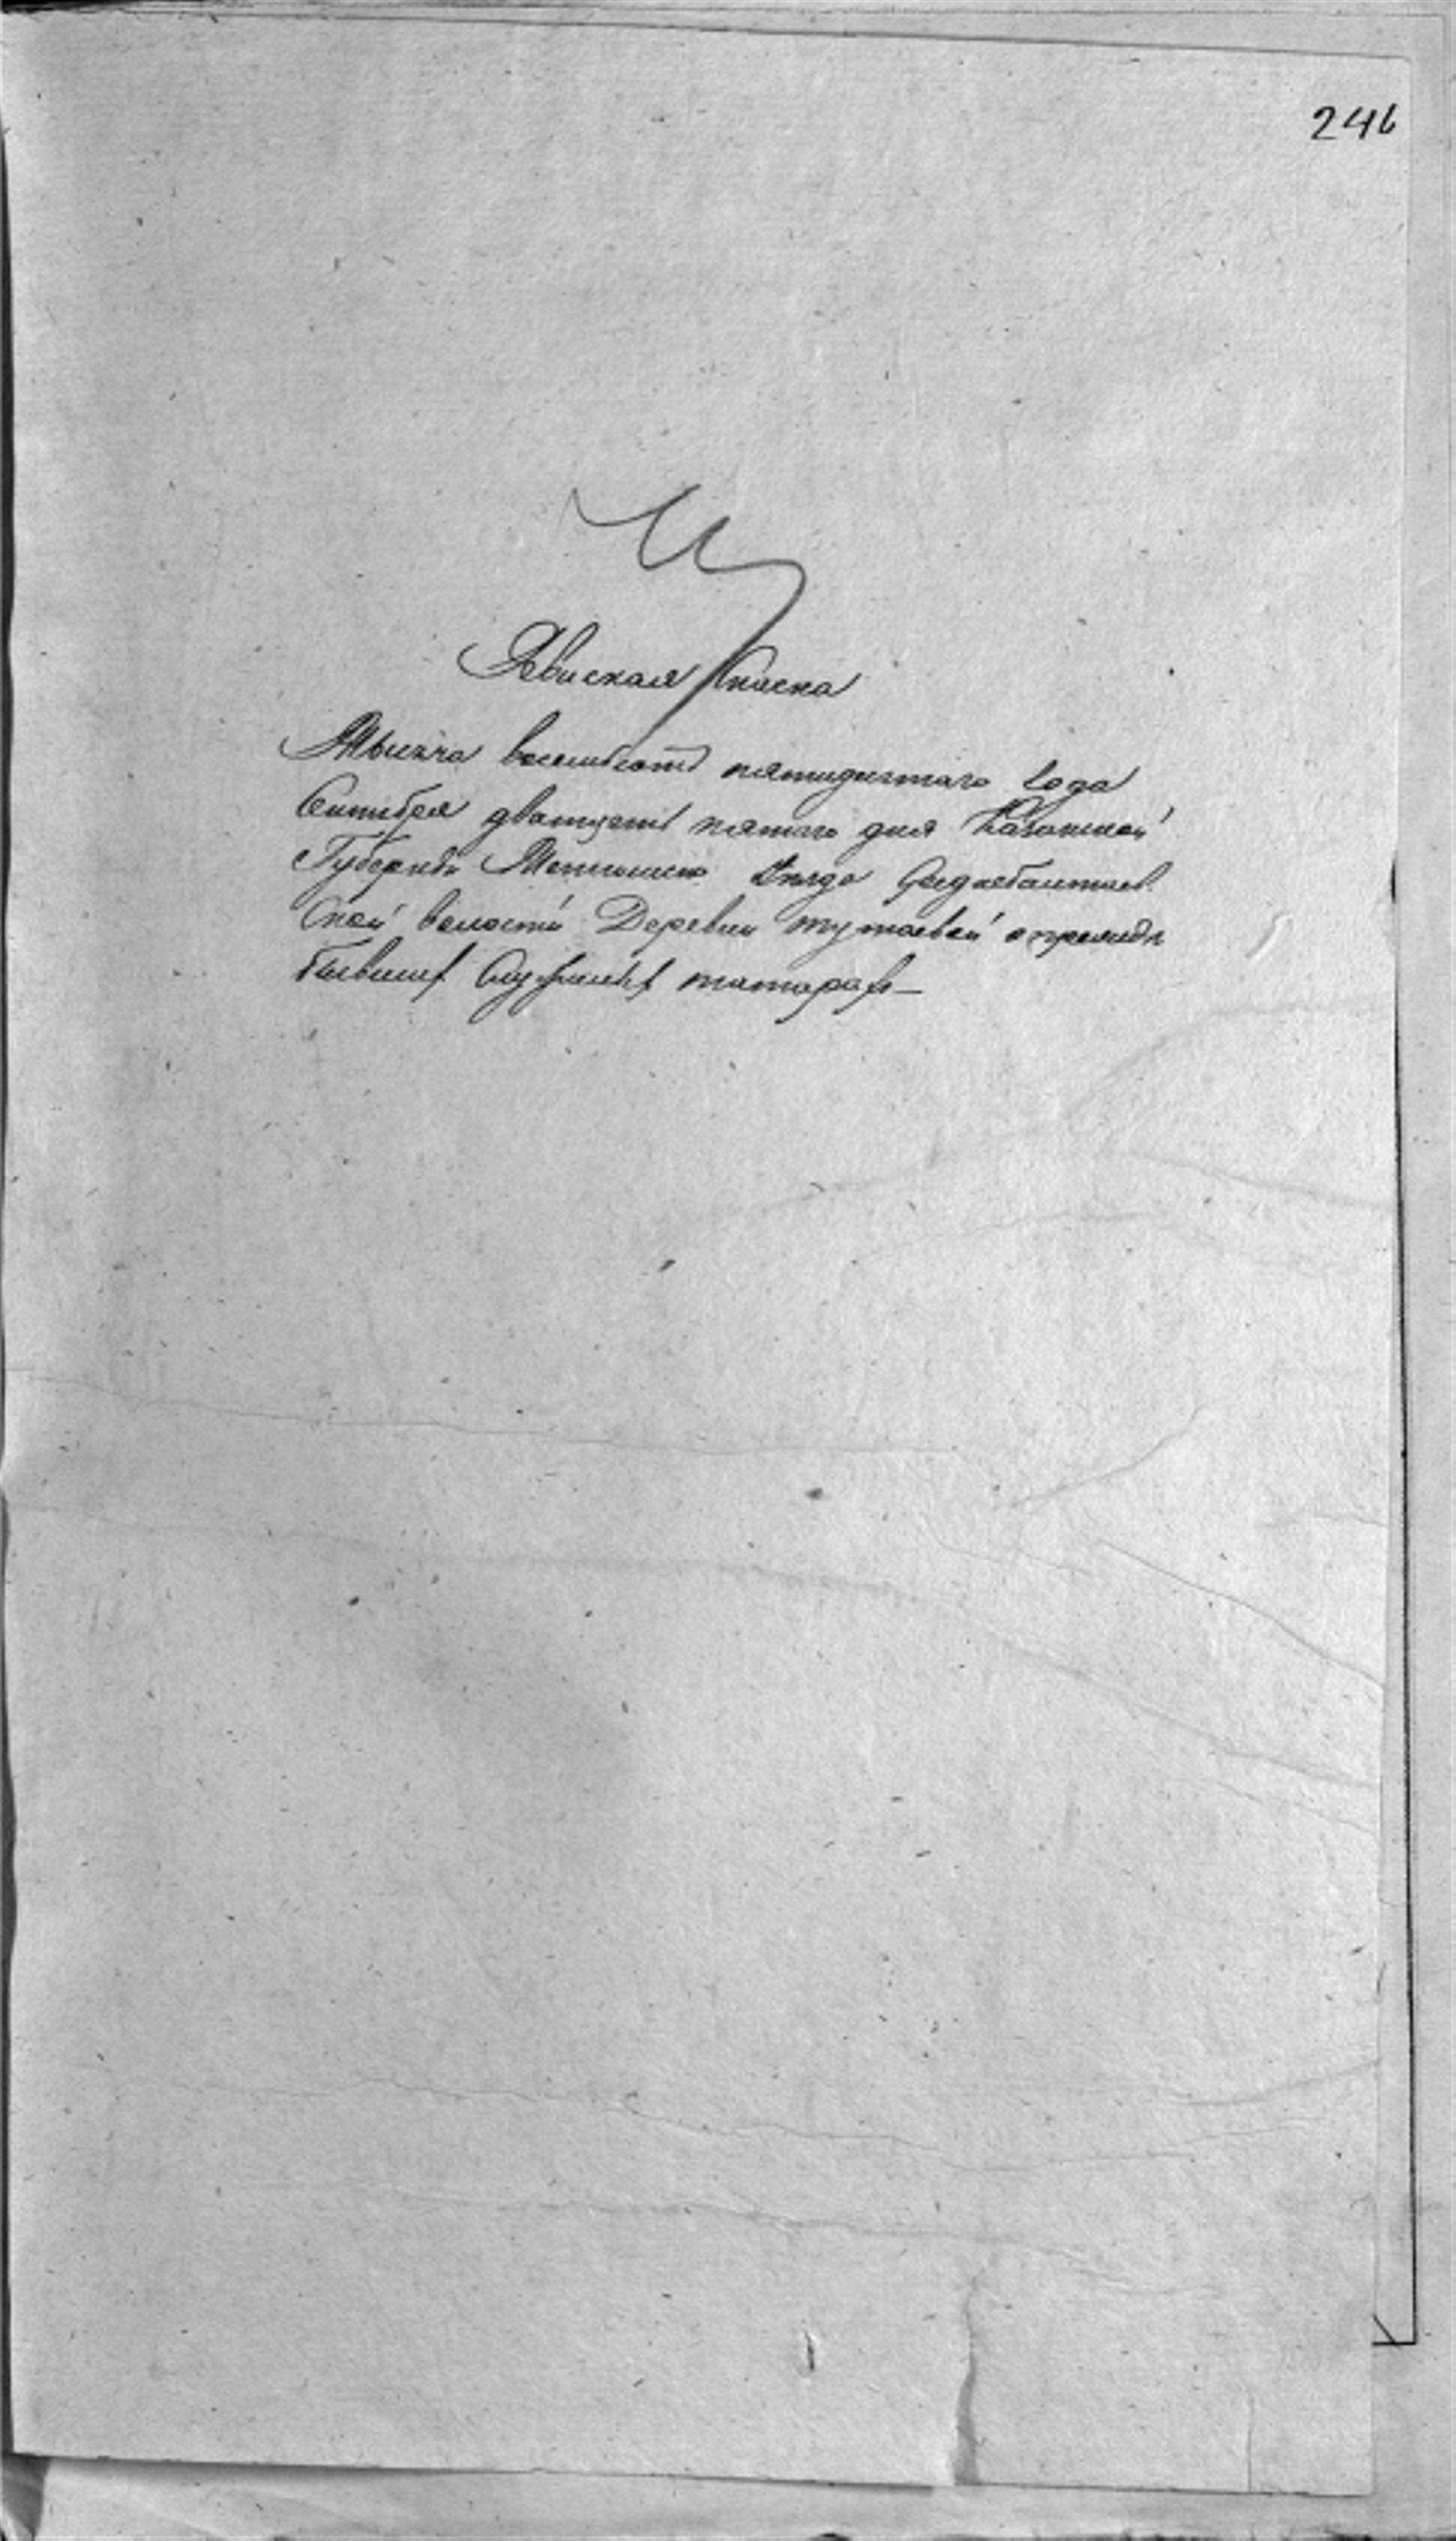 246
Ревиская Скаска
Тысяча восемьсотъ пятидесятаго Года
Сентября дватцеть пятаго дня Казанской
Губерніи Тетюшско Уезда
Ской волости Деревни тутаевой о премидъ
бывших Служилых татарахъ